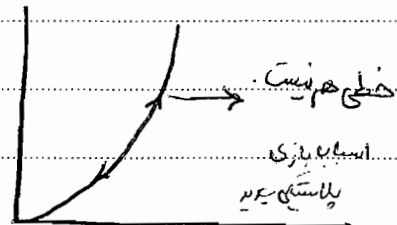 خطی هم نیست.
اسباب بازی
پلاستیکی